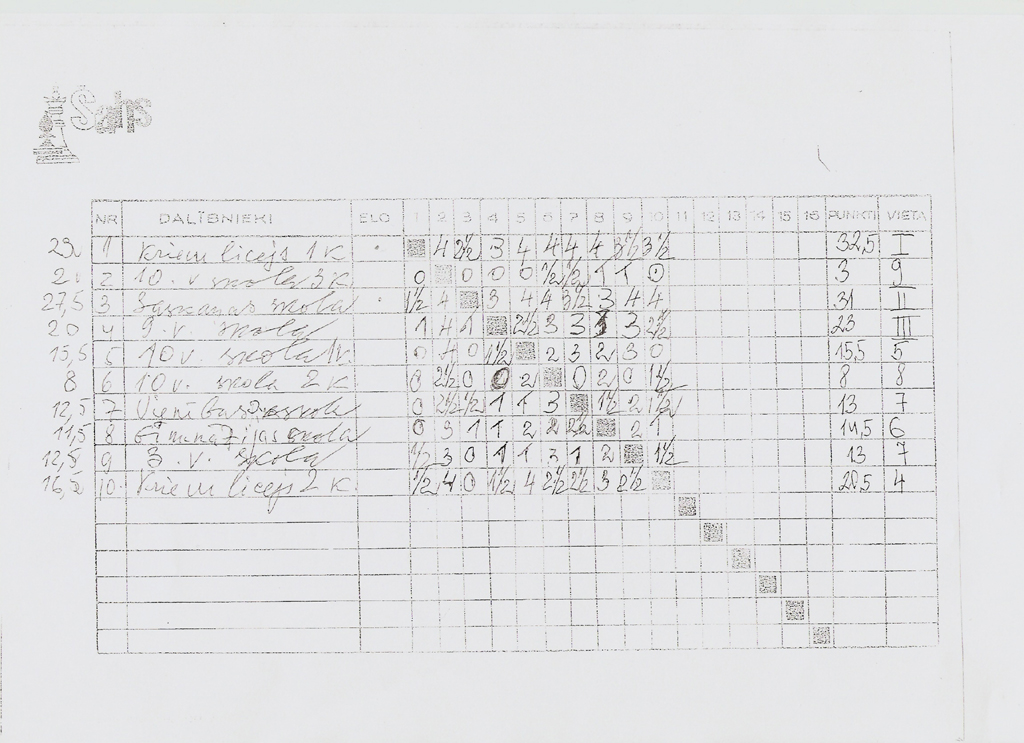 Šahs
NR DALĪBNIEKI ELO 1 2 3 4 5 6 7 8 9 10 11 12 13 14 15 16 PUNKTI VIETA
29. 1 Kriev. licejs 1 k 4 2½ 3 4 4 4 4 3½ 3½ 32,5 I
2 10. v skola 3 k. 0 0 0 0 ½ ½ 1 1 0 3 9
27,5 3 Saskaņas skola 1½ 4 3 4 4 3½ 3 4 4 31 II
20 4 9. v. skola 1 4 1 2½ 3 3 3 2½ 23 III
15,5 5 10 v. skola 1k. 0 4 0 1½ 2 3 2 3 0 15,5 5
8 6 10 v. skola 2 k 0 2½ 0 0 2 0 2 0 1½ 8 8
12,5 7 Vienības skola 0 2½ ½ 1 1 3 1½ 2 1½ 13 7
11,5 8 0 3 1 1 2 2 2½ 2 1 14,5 6
12,5 9 3. v. skola ½ 3 0 1 1 1 2 1½ 13 7
16,5 10. Kriev licejs 2 k. ½ 4 0 1½ 4 2½ 2½ 3 2½ 20,5 4